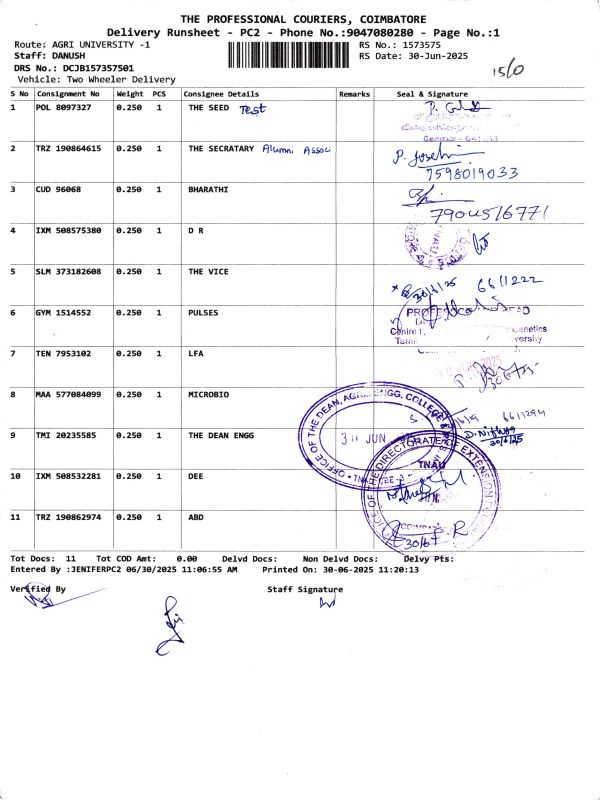 THE PROFESSIONAL COURIERS, COIMBATORE
Delivery Runsheet - PC2 - Phone No.:9047080280 - Page No.:1
Route: AGRI UNIVERSITY -1
RS No.: 1573575
Staff: DANUSH
RS Date: 30-Jun-2025
DRS No.: DCJB157357501
Vehicle: Two Wheeler Delivery
15/0
S No Consignment No Weight PCS Consignee Details Remarks Seal & Signature
1 POL 8097327 0.250 1 THE SEED Test
2 TRZ 190864615 0.250 1 THE SECRATARY Alumni Assoc
7598019033
3 CUD 96068 0.250 1 BHARATHI
4 IXM 508575380 0.250 1 D R
TNAU
5 SLM 373182608 0.250 1 THE VICE
30/6/25 6611222
6 GYM 1514552 0.250 1 PULSES
PROFESSOR HEAD
Centre Genetics
versity
7 TEN 7953102 0.250 1 LFA
8 MAA 577084099 0.250 1 MICROBIO
9 TMI 20235585 0.250 1 THE DEAN ENGG
OFFICE OF THE DEAN, AGRI. ENGG. COLLEGE
30 JUN
30/6/25
10 IXM 508532281 0.250 1 DEE
OFFICE OF THE DIRECTORATE OF EXTENSION
TNAU
11 TRZ 190862974 0.250 1 ABD
30/6
Tot Docs: 11 Tot COD Amt: 0.00 Delvd Docs: Non Delvd Docs: Delvy Pts:
Entered By :JENIFERPC2 06/30/2025 11:06:55 AM Printed On: 30-06-2025 11:20:13
Verified By Staff Signature